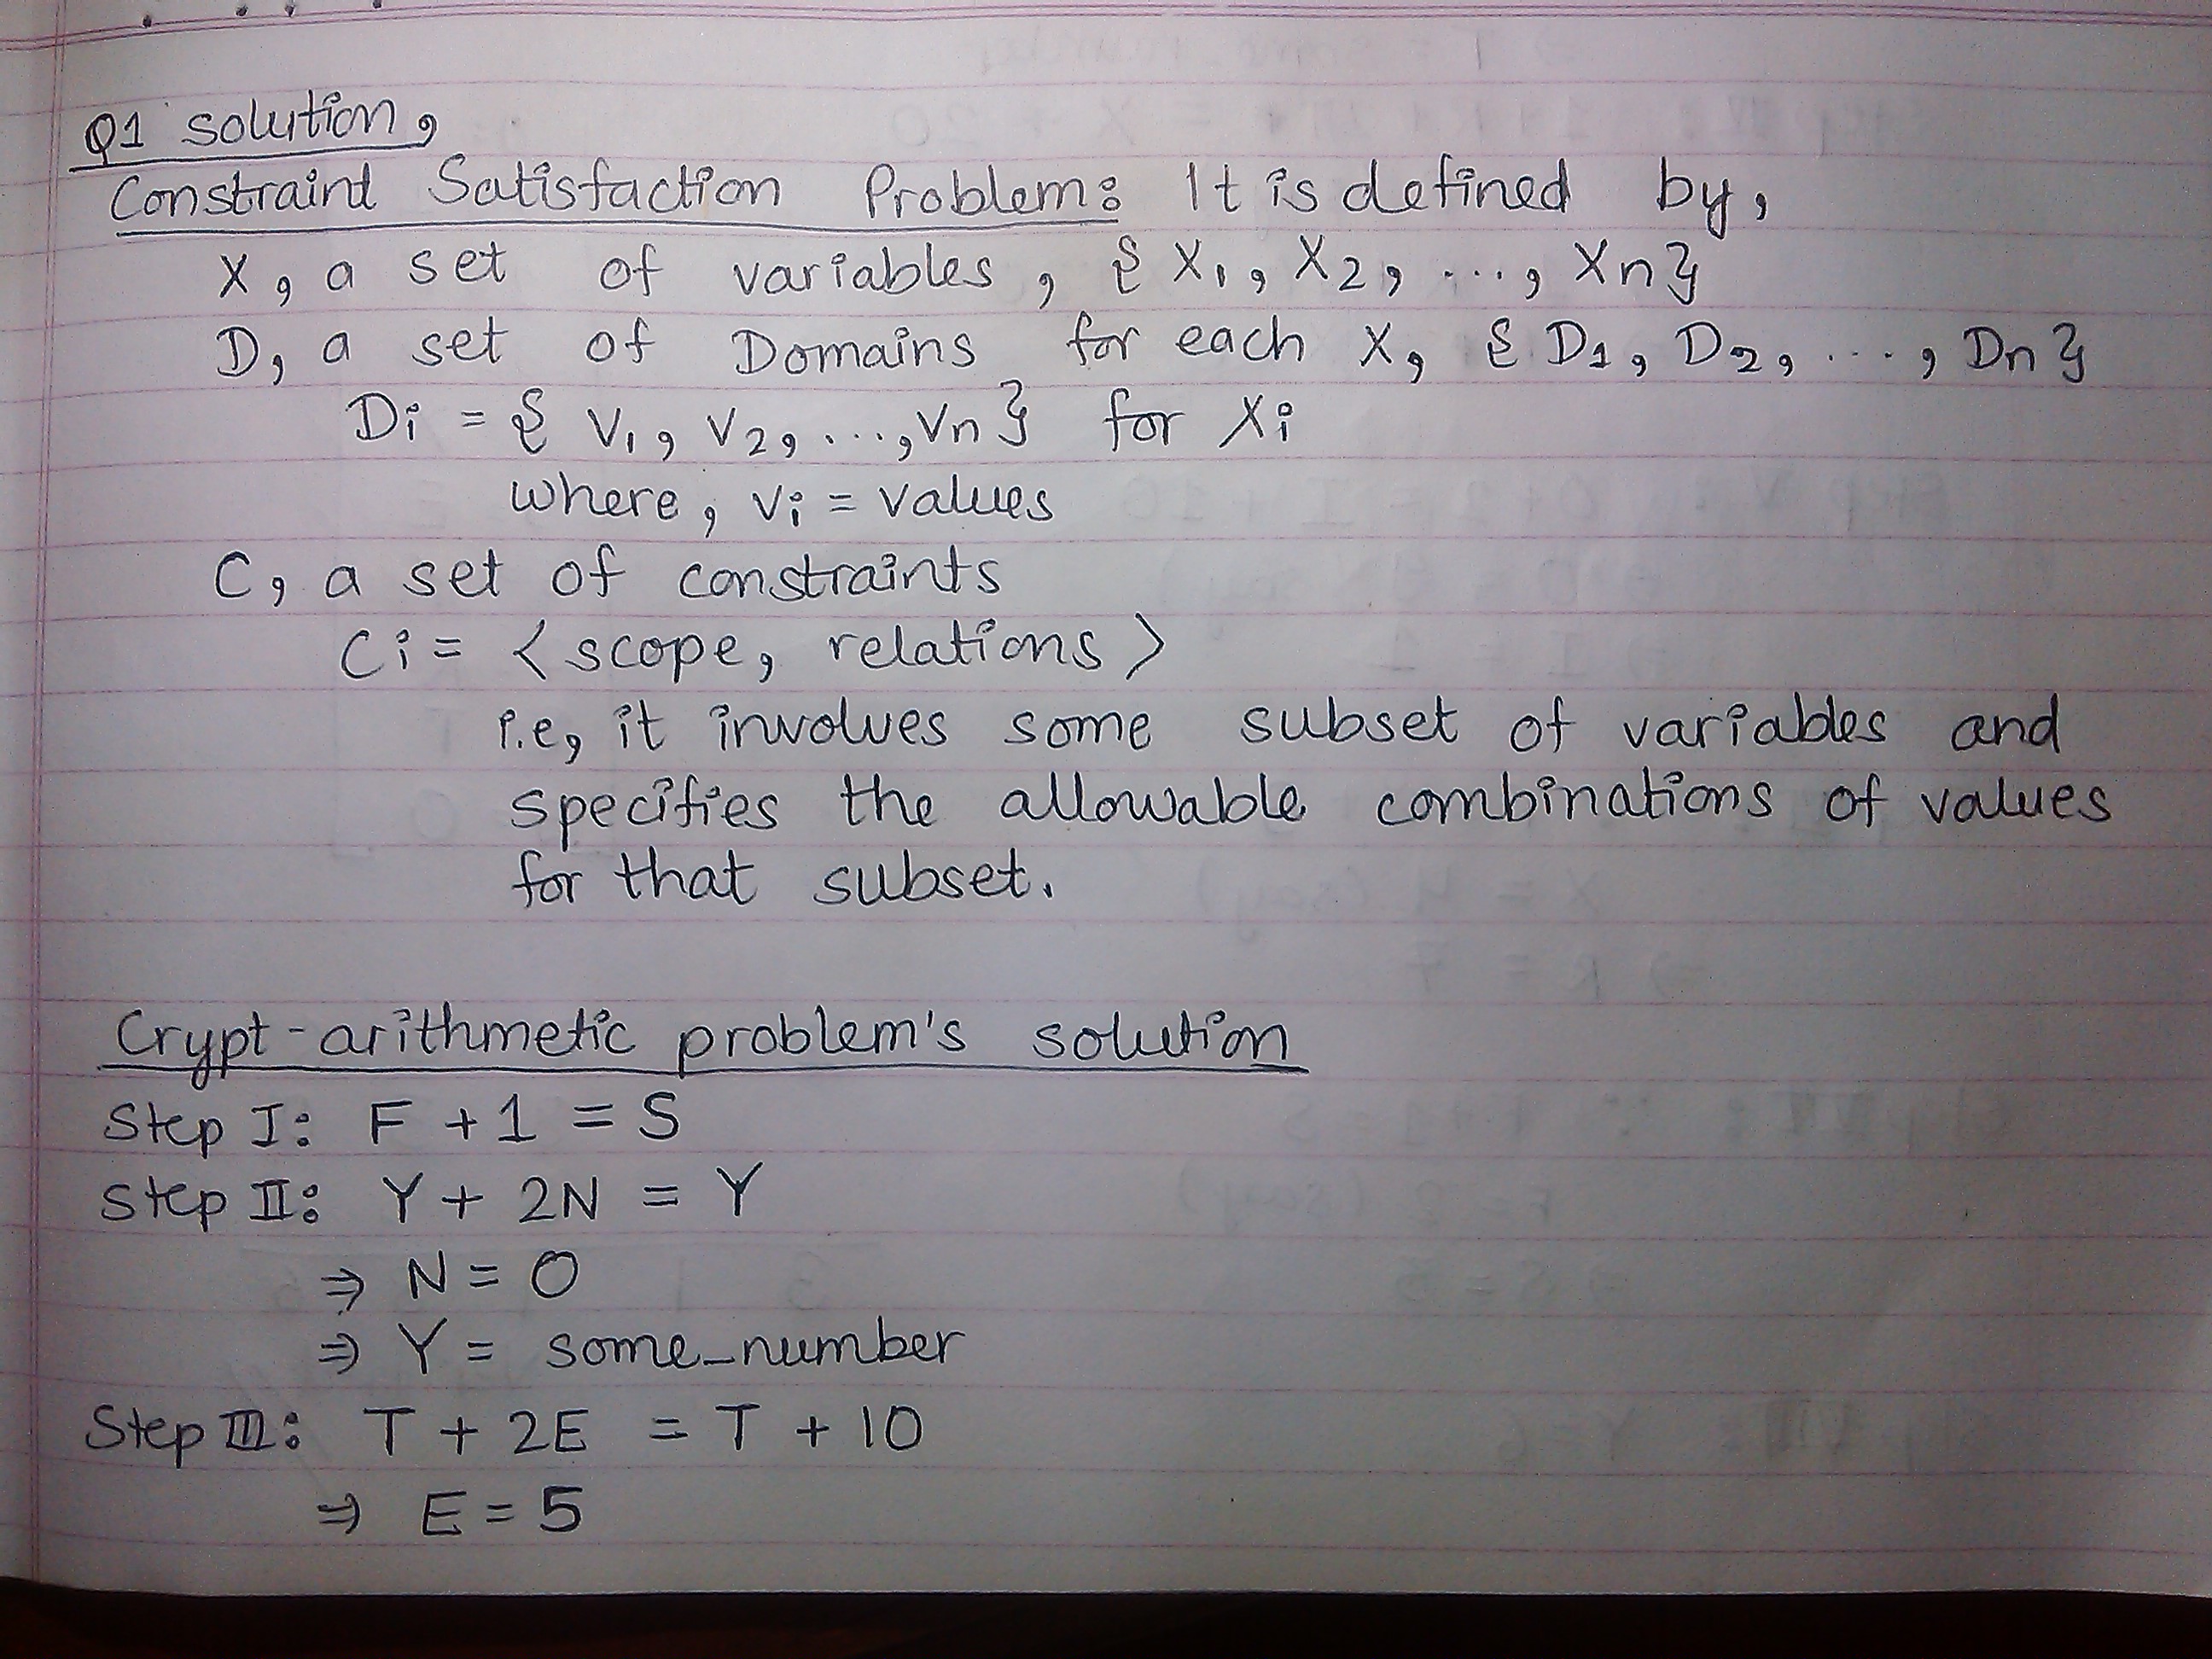 Q1 solution,
Constraint Satisfaction Problem: It is defined by,
X, a set of variables, { X1, X2, ..., Xn}
D, a set of Domains for each X, { D1, D2, ..., Dn }
Di = { V1, V2, ..., Vn } for Xi
where, vi = values
C, a set of constraints
Ci = < scope, relations >
i.e, it involves some subset of variables and
specifies the allowable combinations of values
for that subset.
Crypt-arithmetic problem's solution
Step I: F + 1 = S
Step II: Y + 2N = Y
⇒ N = 0
⇒ Y = some_number
Step III: T + 2E = T + 10
⇒ E = 5